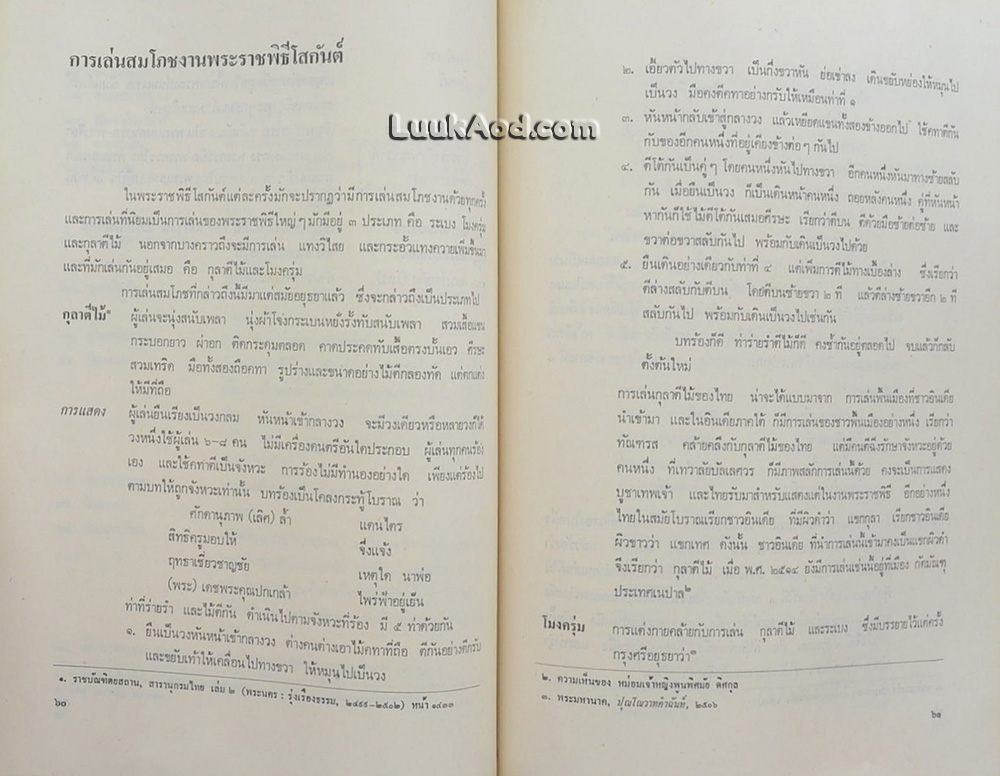 การเล่นสมโภชงานพระราชพิธีโสกันต์
ในพระราชพิธีโสกันต์แต่ละครั้งมักจะปรากฏว่ามีการเล่นสมโภชงานด้วยทุกครั้ง
และการเล่นที่นิยมเป็นการเล่นของพระราชพิธีใหญ่ๆ มักมีอยู่ ๓ ประเภท คือ ระเบง โมงครุ่ม
และกุลาตีไม้ นอกจากบางคราวถึงจะมีการเล่น แทงวิไสย และกระอั้วแทงควายเพิ่มขึ้นมา
และที่มักเล่นกันอยู่เสมอ คือ กุลาตีไม้และโมงครุ่ม
การเล่นสมโภชที่กล่าวถึงนี้มีมาแต่สมัยอยุธยาแล้ว ซึ่งจะกล่าวถึงเป็นประเภทไป
กุลาตีไม้๑ ผู้เล่นจะนุ่งสนับเพลา นุ่งผ้าโจงกระเบนหยักรั้งทับสนับเพลา สวมเสื้อแขน
กระบอกยาว ผ่าอก ติดกระดุมตลอด คาดประคดทับเสื้อตรงบั้นเอว ศีรษะ
สวมเทริด มือทั้งสองถือคทา รูปร่างและขนาดอย่างไม้ตีกลองทัด แต่ตกแต่ง
ให้มีที่ถือ
การแสดง ผู้เล่นยืนเรียงเป็นวงกลม หันหน้าเข้ากลางวง จะมีวงเดียวหรือหลายวงก็ได้
วงหนึ่งใช้ผู้เล่น ๖-๘ คน ไม่มีเครื่องดนตรีอันใดประกอบ ผู้เล่นทุกคนร้อง
เอง และใช้คทาตีเป็นจังหวะ การร้องไม่มีทำนองอย่างใด เพียงแต่ร้องไป
ตามบทให้ถูกจังหวะเท่านั้น บทร้องเป็นโคลงกระทู้โบราณ ว่า
ศักดานุภาพ (เลิศ) ล้ำ แดนไตร
สิทธิครูมอบให้ จึ่งแจ้ง
ฤทธาเชี่ยวชาญชัย เหตุใด นาพ่อ
(พระ) เดชพระคุณปกเกล้า ไพร่ฟ้าอยู่เย็น
ท่าที่ร่ายรำ และไม้ตีกัน ดำเนินไปตามจังหวะที่ร้อง มี ๕ ท่าด้วยกัน
๑. ยืนเป็นวงหันหน้าเข้ากลางวง ต่างคนต่างเอาไม้คทาที่ถือ ตีกันอย่างตีกรับ
และขยับเท้าให้เคลื่อนไปทางขวา ให้หมุนไปเป็นวง
๑. ราชบัณฑิตยสถาน, สารานุกรมไทย เล่ม ๒ (พระนคร : รุ่งเรืองธรรม, ๒๔๙๙-๒๕๐๒) หน้า ๑๔๓๓
๖๐
๒. เอี้ยวตัวไปทางขวา เป็นกึ่งขวาหัน ย่อเข่าลง เดินขยับหย่องให้หมุนไป
เป็นวง มือคงตีคทาอย่างกรับให้เหมือนท่าที่ ๑
LuukAod.com
๓. หันหน้ากลับเข้าสู่กลางวง แล้วเหยียดแขนทั้งสองข้างออกไป ใช้คทาตีกัน
กับของอีกคนหนึ่งที่อยู่เคียงข้างต่อๆ กันไป
๔. ตีโต้กันเป็นคู่ๆ โดยคนหนึ่งหันไปทางขวา อีกคนหนึ่งหันมาทางซ้ายสลับ
กัน เมื่อยืนเป็นวง ก็เป็นเดินหน้าคนหนึ่ง ถอยหลังคนหนึ่ง คู่ที่หันหน้า
หากันก็ใช้ไม้ตีโต้กันเสมอศีรษะ เรียกว่าตีบน ตีด้วยมือซ้ายต่อซ้าย และ
ขวาต่อขวาสลับกันไป พร้อมกับเดินเป็นวงไปด้วย
๕. ยืนเดินอย่างเดียวกับท่าที่ ๔ แต่เพิ่มการตีไม้ทางเบื้องล่าง ซึ่งเรียกว่า
ตีล่างสลับกับตีบน โดยตีบนซ้ายขวา ๒ ที แล้วตีล่างซ้ายขวาอีก ๒ ที
สลับกันไป พร้อมกับเดินเป็นวงไปเช่นกัน
บทร้องก็ดี ท่าร่ายรำตีไม้ก็ดี คงซ้ำกันอยู่ตลอดไป จบแล้วก็กลับ
ตั้งต้นใหม่
การเล่นกุลาตีไม้ของไทย น่าจะได้แบบมาจาก การเล่นพื้นเมืองที่ชาวอินเดีย
นำเข้ามา และในอินเดียภาคใต้ ก็มีการเล่นของชาวพื้นเมืองอย่างหนึ่ง เรียกว่า
ทัณฑรส คล้ายคลึงกับกุลาตีไม้ของไทย แต่มีคนตีฉิ่งรักษาจังหวะอยู่ด้วย
คนหนึ่ง ที่เทวาลัยบัลเลศวร ก็มีภาพสลักการเล่นนี้ด้วย คงจะเป็นการแสดง
บูชาเทพเจ้า และไทยรับมาสำหรับแสดงแต่ในงานพระราชพิธี อีกอย่างหนึ่ง
ไทยในสมัยโบราณเรียกชาวอินเดีย ที่มีผิวดำว่า แขกกุลา เรียกชาวอินเดีย
ผิวขาวว่า แขกเทศ ดังนั้น ชาวอินเดีย ที่นำการเล่นนี้เข้ามาคงเป็นแขกผิวดำ
จึงเรียกว่า กุลาตีไม้ เมื่อ พ.ศ. ๒๕๑๔ ยังมีการเล่นเช่นนี้อยู่ที่เมือง กัตมัณฑุ
ประเทศเนปาล๒
โมงครุ่ม การแต่งกายคล้ายกับการเล่น กุลาตีไม้ และระเบง ซึ่งมีบรรยายไว้แต่ครั้ง
กรุงศรีอยุธยาว่า๓
๒. ความเห็นของ หม่อมเจ้าหญิงพูนพิศมัย ดิศกุล
๓. พระมหานาค, ปุณโณวาทคำฉันท์, ๒๕๐๖
๖๑